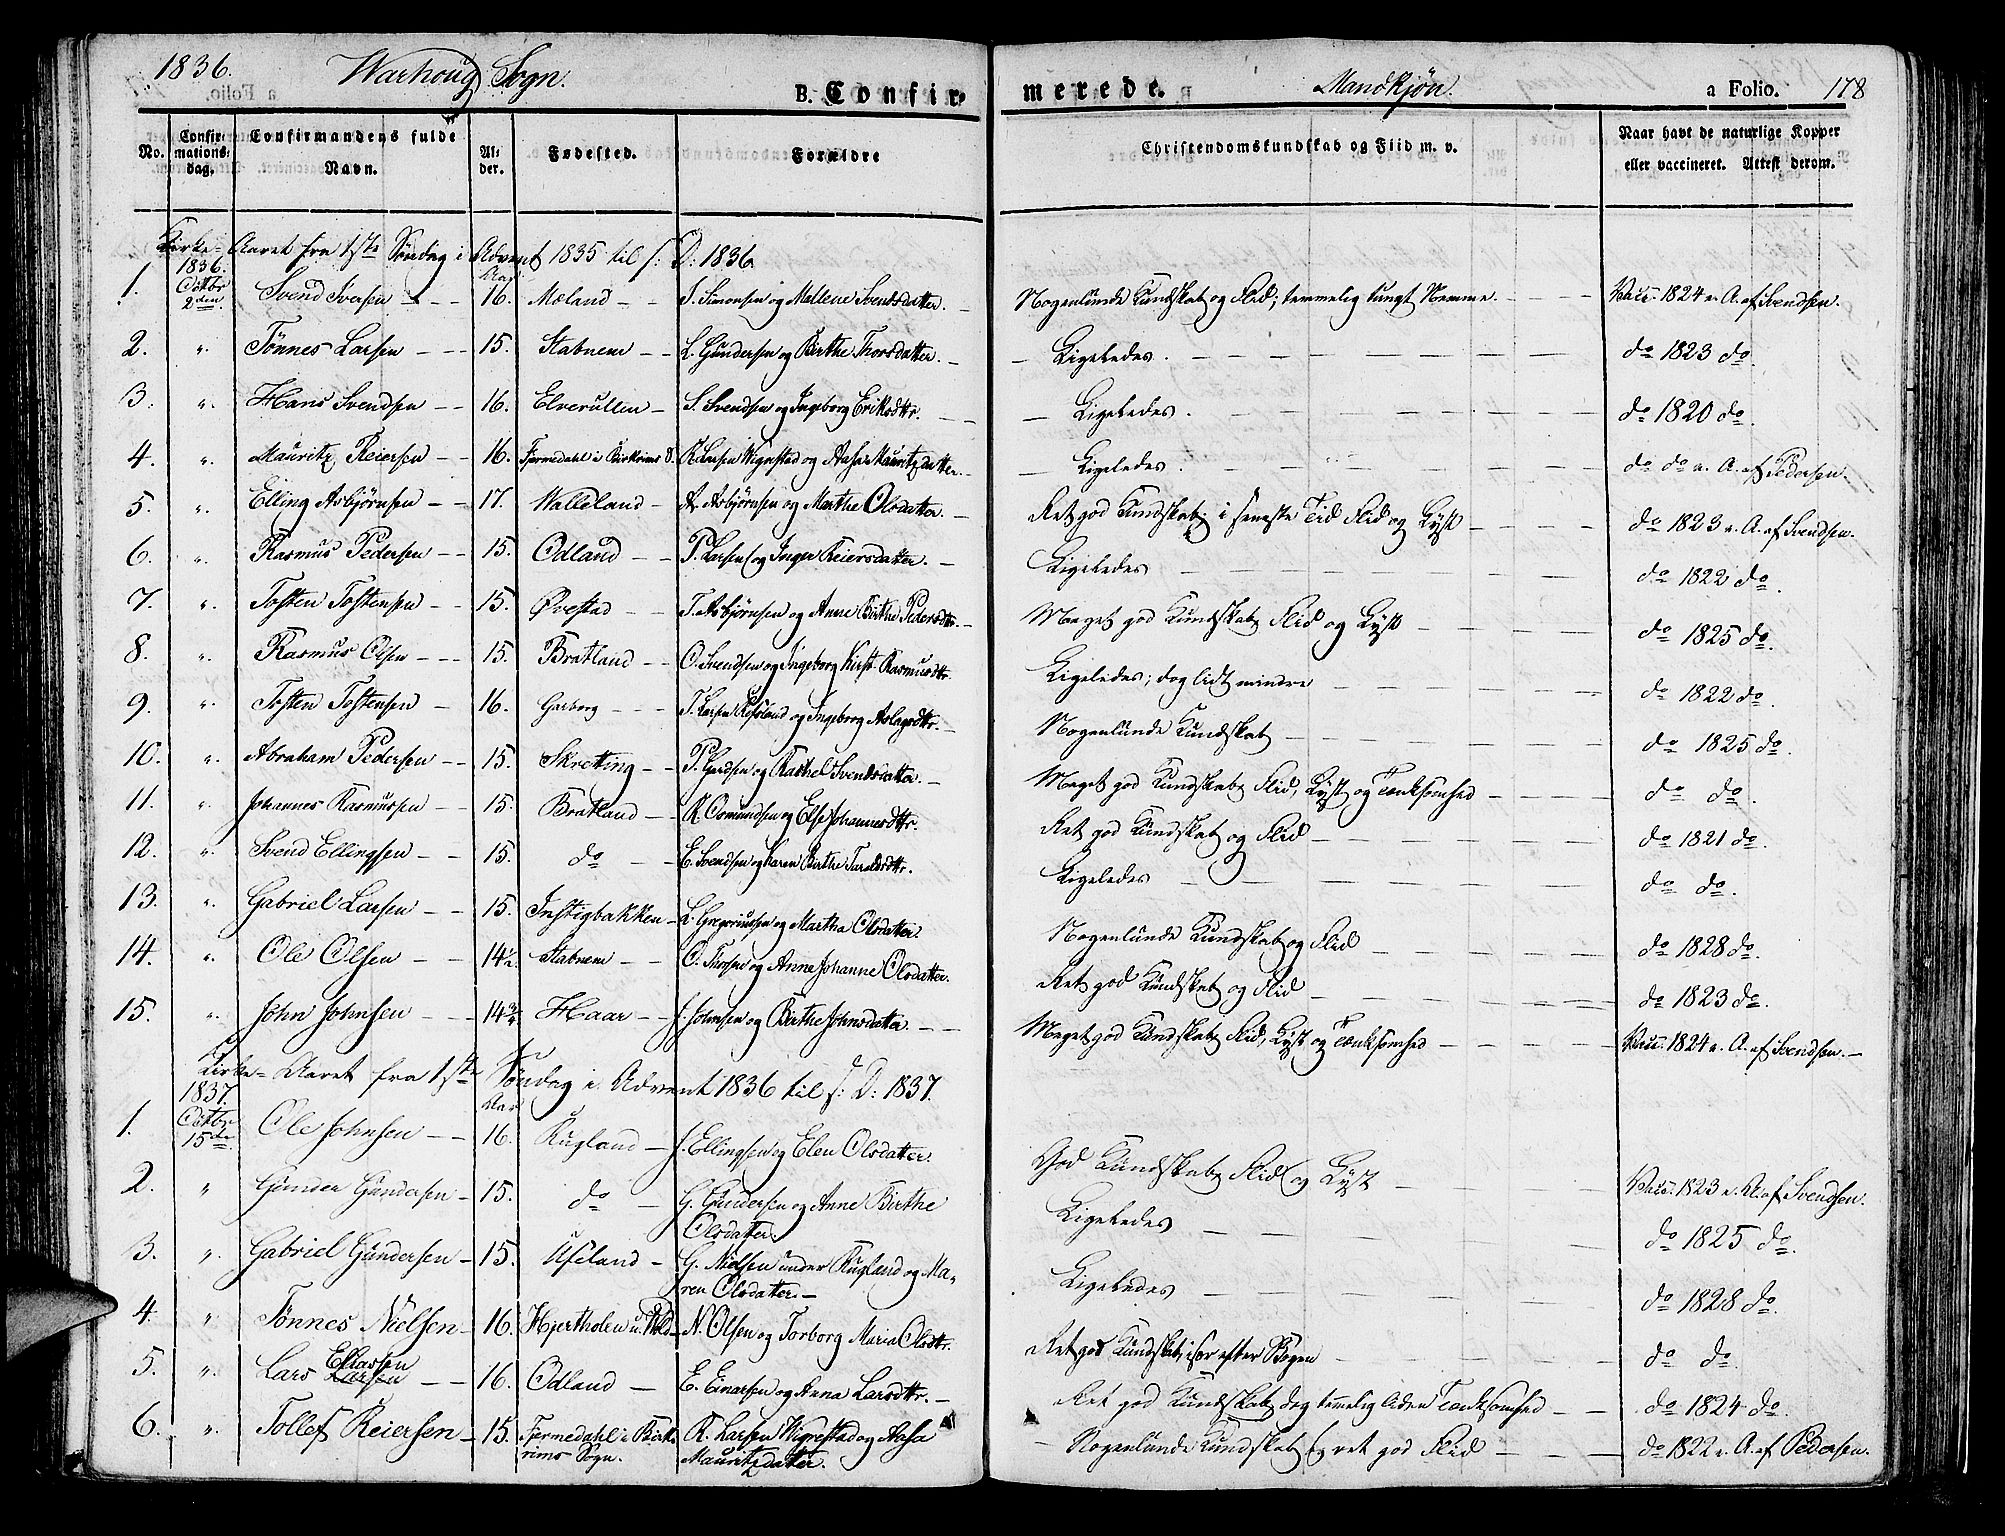 1836. Warhoug Sogn. B. Confirmerede. Mandkjøn. a Folio. 178
No. Confirmationsdag. Confirmandens fulde Navn. Alder. Fødested. Forældre Christendomskundskab og Flid m. v. Naar havt de naturlige Kopper eller vaccineret. Attest derom.
Kirke-Aaret fra 1ste Søndag i Advent 1835 til s: D: 1836
1. 1836. Octbr 2den Svend Iversen - - 16. Aar Mæland - - I. Simonsen og Mallene Svendsdatter. - Nogenlunde Kundskab og Flid; temmelig tungt Nemme. - - - Vacc. 1824 e. A. af Svendsen.
2. " Tønnes Larsen - - - 15. Stabnem - - L. Gundersen og Birthe Thorsdatter. - - Ligeledes. - - - do 1823 do
3. " Hans Svendsen - - 16. Elverullen - S. Svendsen og Ingeborg Eriksdtr. - - - Ligeledes. - - - do 1820 do
4. " Mauritz Reiersen - - 16. Fjermedahl i Birkrims S. R. Larsen Wigrestad og Aasa Mauritzdatter. - - Ligeledes. - - - do do e. A. af Pedersen.
5. " Elling Asbjørnsen - - 17. Walleland - - A. Asbjørnsen og Marthe Olsdatter. - Ret god Kundskab; i seneste Tid Flid og Lyst - - - do 1823 e. A. af Svendsen.
6. " Rasmus Pedersen - - 15. Odland - - P. Larsen og Inger Reiersdatter. - Ligeledes - - - do 1822 do.
7. " Tosten Tostensen - - 15. Øvestad - - T. Asbjørnsen og Anne Birthe Pedersdtr. - Meget god Kundskab, Flid og Lyst - - - do 1825 do.
8. " Rasmus Olsen - - - 15. Bratland - - O. Svendsen og Ingeborg Kirst. Rasmusdtr. Ligeledes; dog lidt mindre - - - do 1822 do.
9. " Tosten Tostensen - 16. Garborg - - - T. Larsen Røisland og Ingeborg Aslagsdtr. - Nogenlunde Kundskab - - - do 1825 do.
10. " Abraham Pedersen - - 15. Skretting - - P. Gardsen og Rachel Svendsdatter. - Meget god Kundskab, Flid, Lyst og Tænksomhed - - - do do.
11. " Johannes Rasmussen - 15. Bratland - - R. Osmundsen og Else Johannesdtr. Ret god Kundskab og Flid - - - do 1821 do.
12. " Svend Ellingsen - - 15. do - - E. Svendsen og Karen Birthe Taraldsdtr. Ligeledes - - - do do.
13. " Gabriel Larsen - - 15. Instigbakken - L. Gregoriussen og Martha Olsdatter. Nogenlunde Kundskab og Flid - - - do 1828 do.
14. " Ole Olsen - - 14½. Stabnem - - O. Thorsen og Anne Johanne Olsdatter. Ret god Kundskab og Flid - - - do 1823 do.
15. " John Johnsen - - - 14¾ Haar - - J. Johnsen og Birthe Johnsdatter. - - Meget god Kundskab, Flid, Lyst og Tænksomhed - - - Vacc. 1824 e. A. af Svendsen. -
Kirke-Aaret fra 1ste Søndag i Advent 1836 til s: D: 1837.
1. 1837. Octbr 15de Ole Johnsen - - 16. Aar Rugland - J. Ellingsen og Elen Olsdatter. God Kundskab, Flid og Lyst - - - Vacc. 1823 e. A. af Svendsen.
2. " Gunder Gundersen - 15. do - G. Gundersen og Anne Birthe Olsdatter. Ligeledes - - - do 1825 do.
3. " Gabriel Gundersen - 15. Useland - G. Nielsen under Rugland og Maren Olsdatter. - Ligeledes - - - do 1828 do.
4. " Tønnes Nielsen - 16. Hjertholen u. Hold - N. Olsen og Torborg Maria Olsdtr. Ret god Kundskab, især efter Bogen - - - do do.
5. " Lars Larsen Eliassen - - 16. Odland - E. Einarsen og Anna Larsdtr. - Ret god Kundskab, dog temmelig liden Tænksomhed - - do 1824 do.
6. " Tollef Reiersen - 15. Fjermedahl i Birkrims Sogn. R. Larsen Wigrestad og Aasa Mauritzdatter. - Nogenlunde Kundskab & ret god Flid - - - do 1822 e. A. af Pedersen.